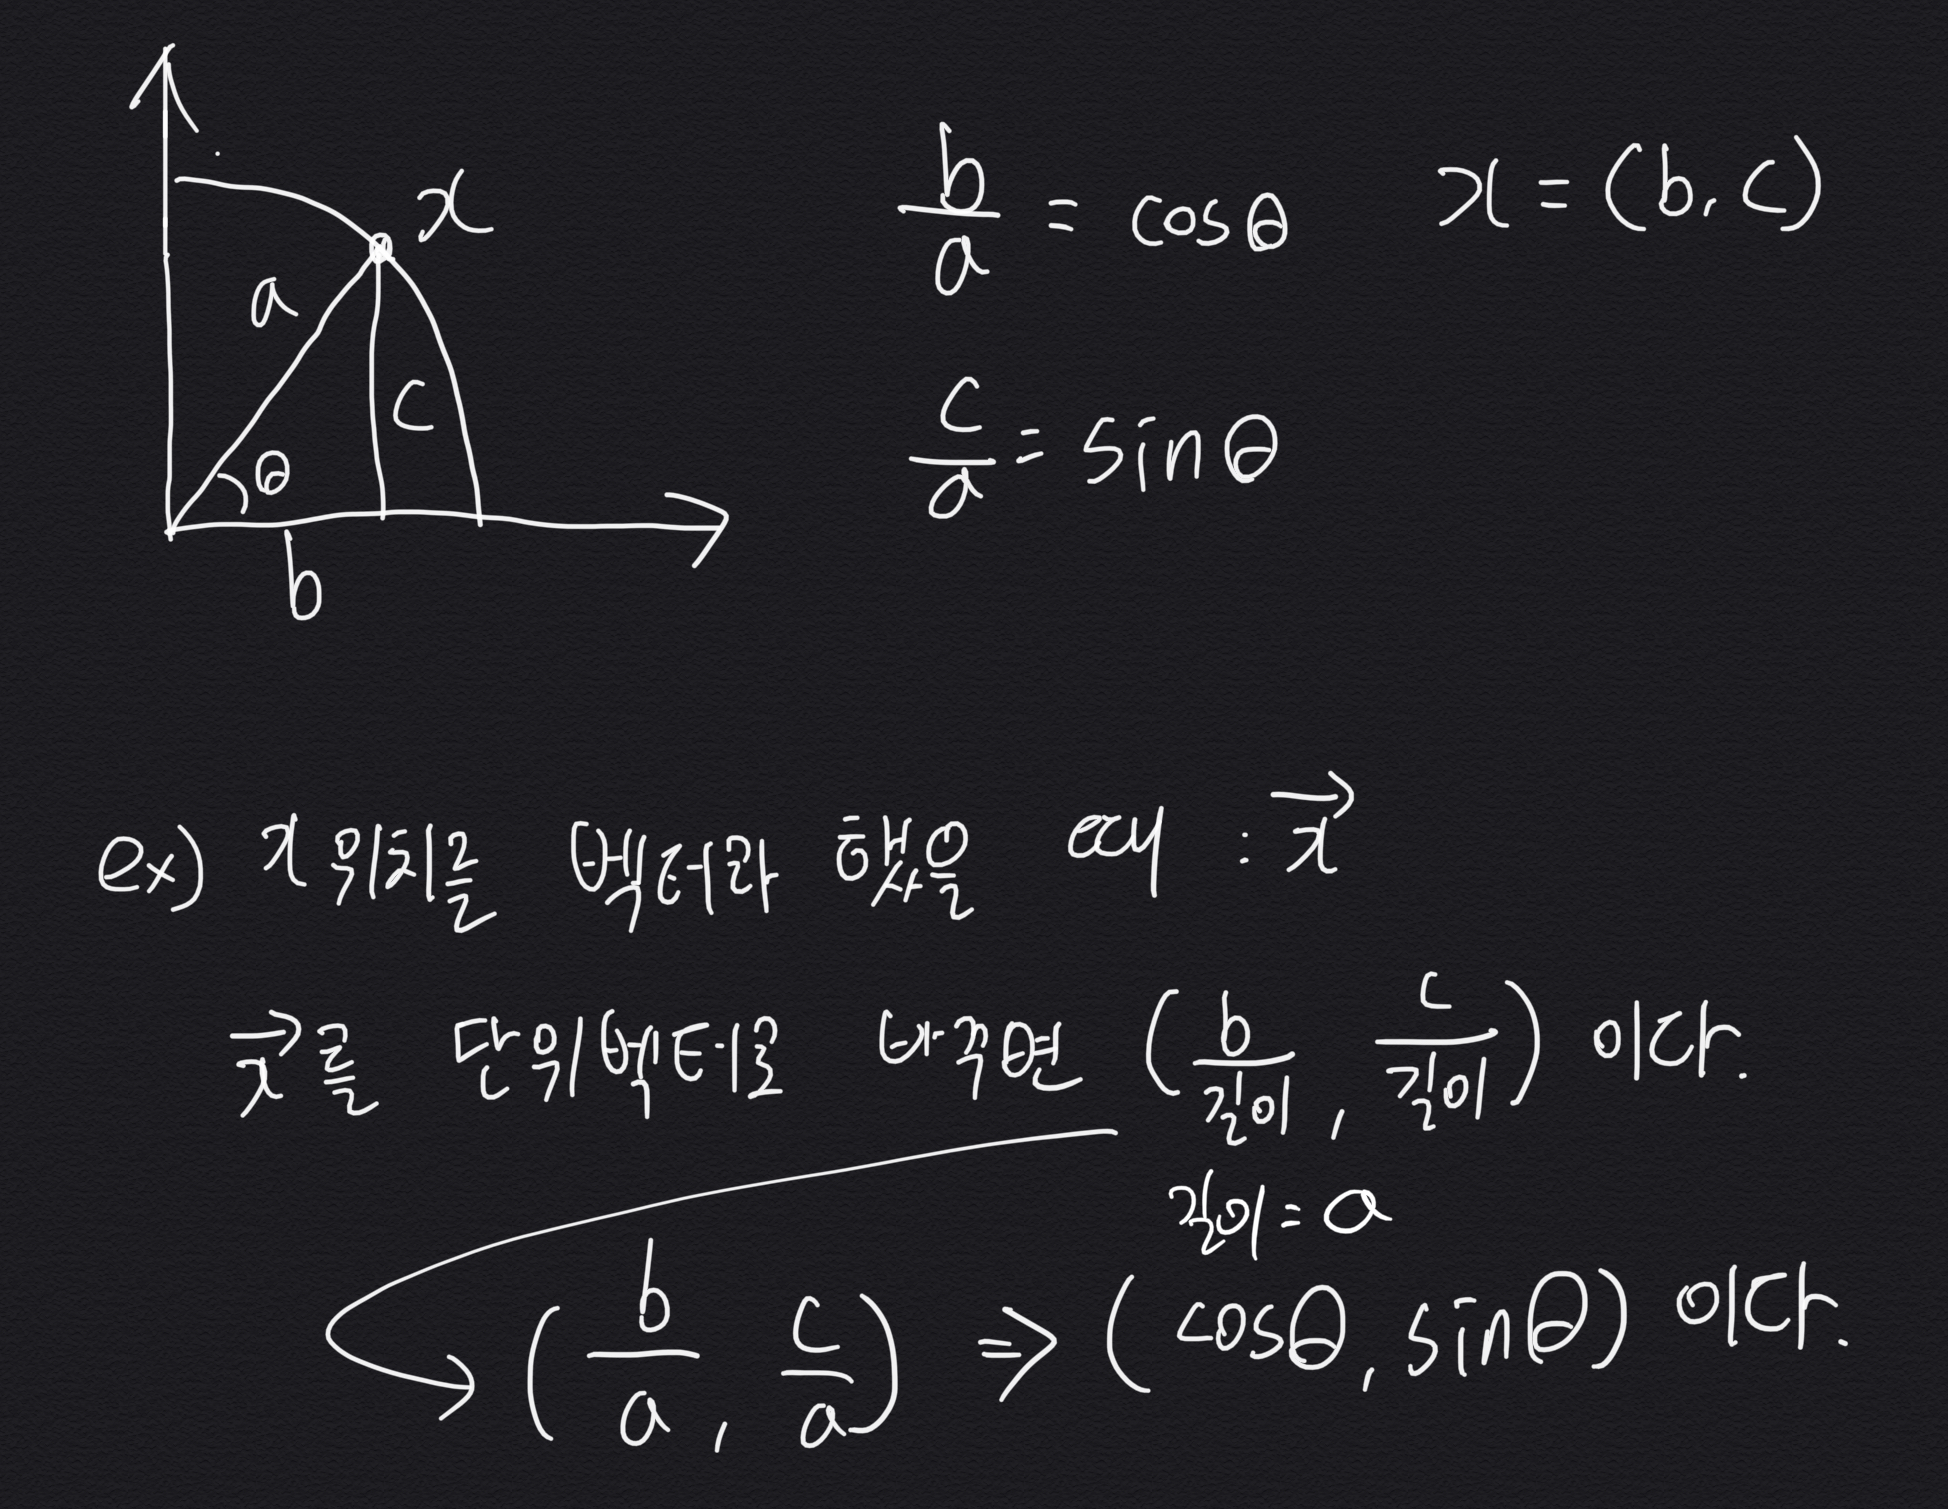 x
a
c
θ
b
b/a = cosθ
x = (b, c)
c/a = sinθ
ex) x위치를 벡터라 했을 때 : x⃗
x⃗를 단위벡터로 바꾸면 (b/길이, c/길이) 이다.
길이 = a
(b/a, c/a) ⇒ (cosθ, sinθ) 이다.